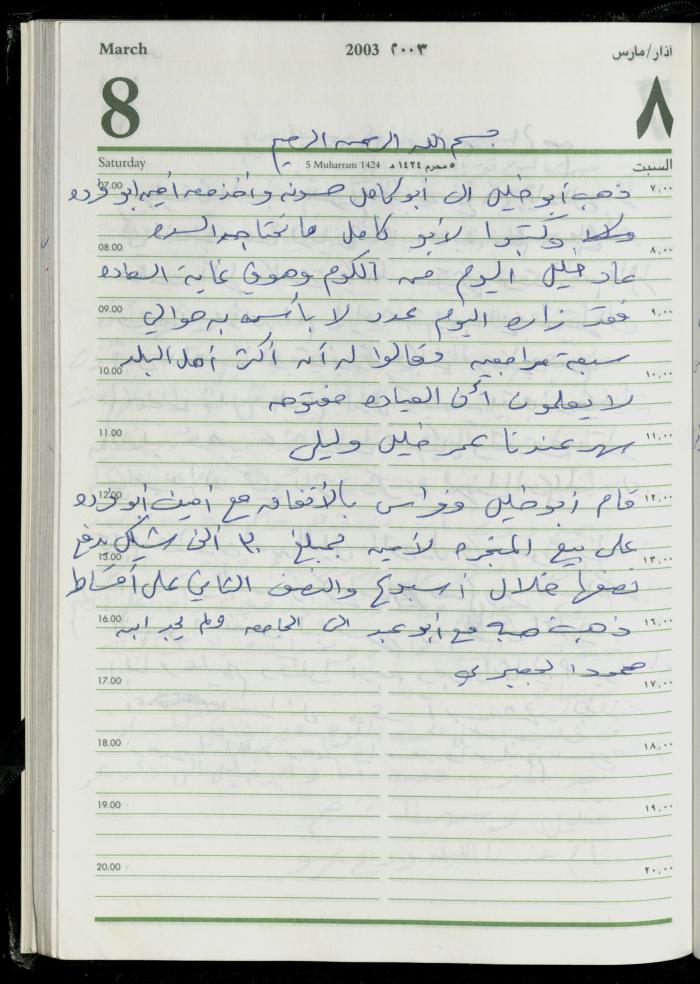 March 2003 ٢٠٠٣ آذار/مارس
8 ٨
بسم الله الرحمن الرحيم
Saturday 5 Muharram 1424 ٥ محرم ١٤٢٤ هـ السبت
07.00 ذهب أبو خليل الى أبو كامل حسونه وأخذ معه أمين ابو فرده ٧,٠٠
وكتبوا لأبو كامل ما تحتاجه السده
08.00 ٨,٠٠
عاد خليل اليوم من الكوم وهو في غاية السعاده
09.00 فقد زاره اليوم عدد لا بأس به حوالي ٩,٠٠
سبعة مراجعين وقالوا له أن أكثر أهل البلد
10.00 ١٠,٠٠
لا يعلمون أن العياده مفتوحه
11.00 سهر عندنا عمر خليل وليلى ١١,٠٠
12.00 قام أبو خليل وفراس بالأتفاق مع أمين أبو فرده ١٢,٠٠
على بيع المنجره لأمين بمبلغ ٣٠ ألف شيكل يدفع
13.00 ١٣,٠٠
نصفها خلال أسبوع والنصف الثاني على أقساط
16.00 ذهبت مع أبو عبد الى الجامعه ولم يجد ابن ١٦,٠٠
محمود
17.00 ١٧,٠٠
18.00 ١٨,٠٠
19.00 ١٩,٠٠
20.00 ٢٠,٠٠